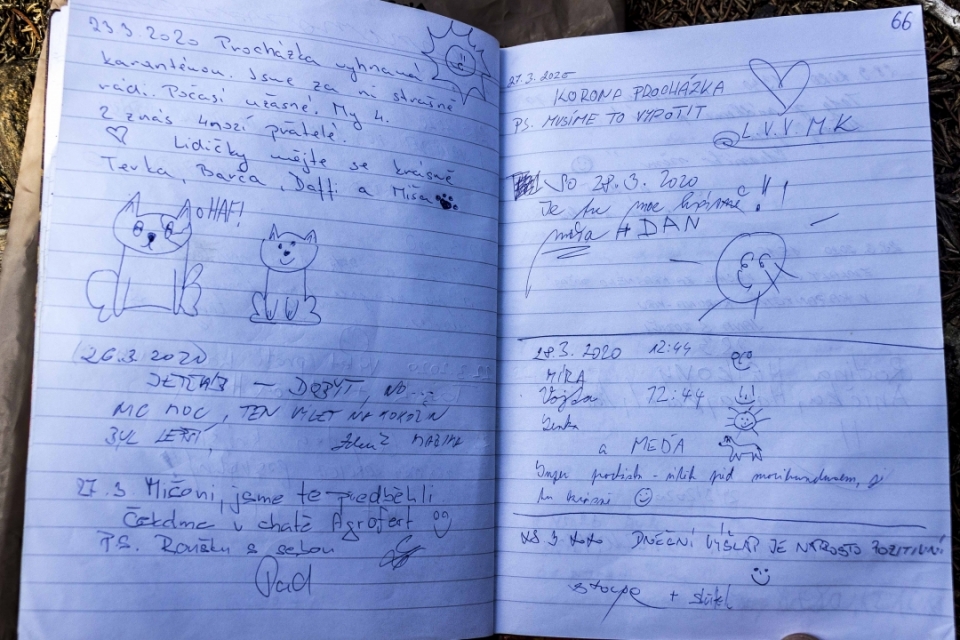 23.3.2020 Procházka vyhnaná
karanténou. Jsme za ni strašně
rádi. Počasí úžasné! My 4.
2 z nás 4nozí přátelé.
Lidičky mějte se krásně
Terka, Barča, Daffi a Míša
HAF!
26.3.2020
DOBYT, NO...
NIC MOC, TEN VÝLET NA KOKOŘÍN
BYL LEPŠÍ
27.3. Míčoni, jsme te předběhli
Čekáme v chatě Agrofert
P.S. Roušky s sebou
66
27.3.2020
KORONA PROCHÁZKA
PS. MUSÍME TO VYPOTIT
L.V.V M.K
SO 28.3.2020
Je tu moc krásně!
+ DAN
28.3.2020 12:44
MÍRA
Vojta 12:44
Lenka
a MEĎA
28.3.2020 DNEŠNÍ VÝŠLAP JE NAPROSTO POZITIVNÍ